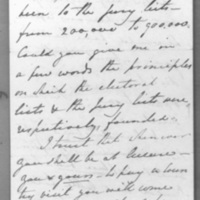 been to the jury lists—
from 200,000 to 500,000.
Could you give me in
a few words the principles
on which the electoral
lists & the jury lists are,
respectively, founded.
I trust that
you shall be at
you & yours - to pay a
visit you will come